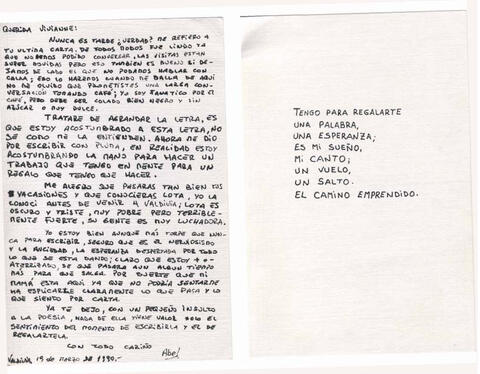 QUERIDA VIVIANNE:
NUNCA ES TARDE ¿VERDAD? ME REFIERO A
TU ULTIMA CARTA. DE TODOS MODOS FUE LINDO YA
QUE NO HEMOS PODIDO CONVERSAR, LAS VISITAS ESTAN
SUPER ABURRIDAS PERO ESO TAMBIEN ES BUENO SI DE-
JAMOS DE LADO EL QUE NO PODAMOS HABLAR CON
CALMA; ESO LO HAREMOS CUANDO ME SALGA DE AQUI
NO ME OLVIDO QUE PROMETISTES UNA LARGA CON-
VERSACIÓN TOMANDO CAFÉ; YO SOY FANATICO POR EL
CAFÉ, PERO DEBE SER COLADO BIEN NEGRO Y SIN
AZÚCAR O MUY DULCE.
TRATARE DE AGRANDAR LA LETRA, ES
QUE ESTOY ACOSTUMBRADO A ESTA LETRA, NO
SE COMO ME LA ENTIENDEN. AHORA ME DIO
POR ESCRIBIR CON PLUMA, EN REALIDAD ESTOY
ACOSTUMBRANDO LA MANO PARA HACER UN
TRABAJO QUE TENGO EN MENTE PARA UN
REGALO QUE TENGO QUE HACER.
ME ALEGRO QUE PASARAS TAN BIEN TUS
VACACIONES Y QUE CONOCIERAS LOTA, YO LA
CONOCI ANTES DE VENIR A VALDIVIA; LOTA ES
OSCURO Y TRISTE, MUY POBRE PERO TERRIBLE-
MENTE FUERTE, SU GENTE ES MUY LUCHADORA.
YO ESTOY BIEN AUNQUE MAS TORPE QUE NUN-
CA PARA ESCRIBIR, SEGURO QUE ES EL NERVIOSISMO
Y LA ANCIEDAD, LA ESPERANZA DESPERTADA POR TODO
LO QUE SE ESTA DANDO; CLARO QUE ESTOY
ATERRIZADO, DE QUE PASARA AUN ALGUN TIEMPO
MAS PARA QUE SALGA. POR SUERTE QUE MI
MAMÁ ESTA AQUI YA QUE NO PODRIA SENTARME
HA EXPLICARLE CLARAMENTE LO QUE PASA Y LO
QUE SIENTO POR CARTA.
YA TE DEJO, CON UN PEQUEÑO INSULTO
A LA POESIA, NADA DE ELLA TIENE VALOR SOLO EL
SENTIMIENTO DEL MOMENTO DE ESCRIBIRLA Y EL DE
REGALARTELA.
CON TODO CARIÑO
Abel
VALDIVIA 19 DE MARZO DE 1990.-
TENGO PARA REGALARTE
UNA PALABRA,
UNA ESPERANZA;
ES MI SUEÑO,
MI CANTO;
UN VUELO,
UN SALTO.
EL CAMINO EMPRENDIDO.